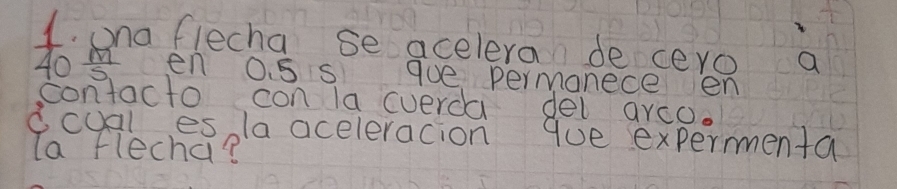 1. una flecha se acelera de cero a
40 m/s en 0.5 s que permanece en
contacto con la cuerda del arco.
¿cual es la aceleracion que expermenta
la flecha?